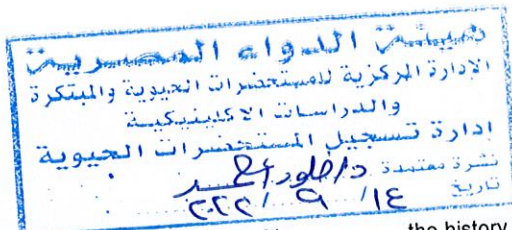 هيئة الدواء المصرية
الإدارة المركزية للمستحضرات الحيوية والمبتكرة
والدراسات الاكلينيكية
إدارة تسجيل المستحضرات الحيوية
نشرة معتمدة د/خلود أحمد
تاريخ ١٤ / ٩ / ٢٠٢٢
the history